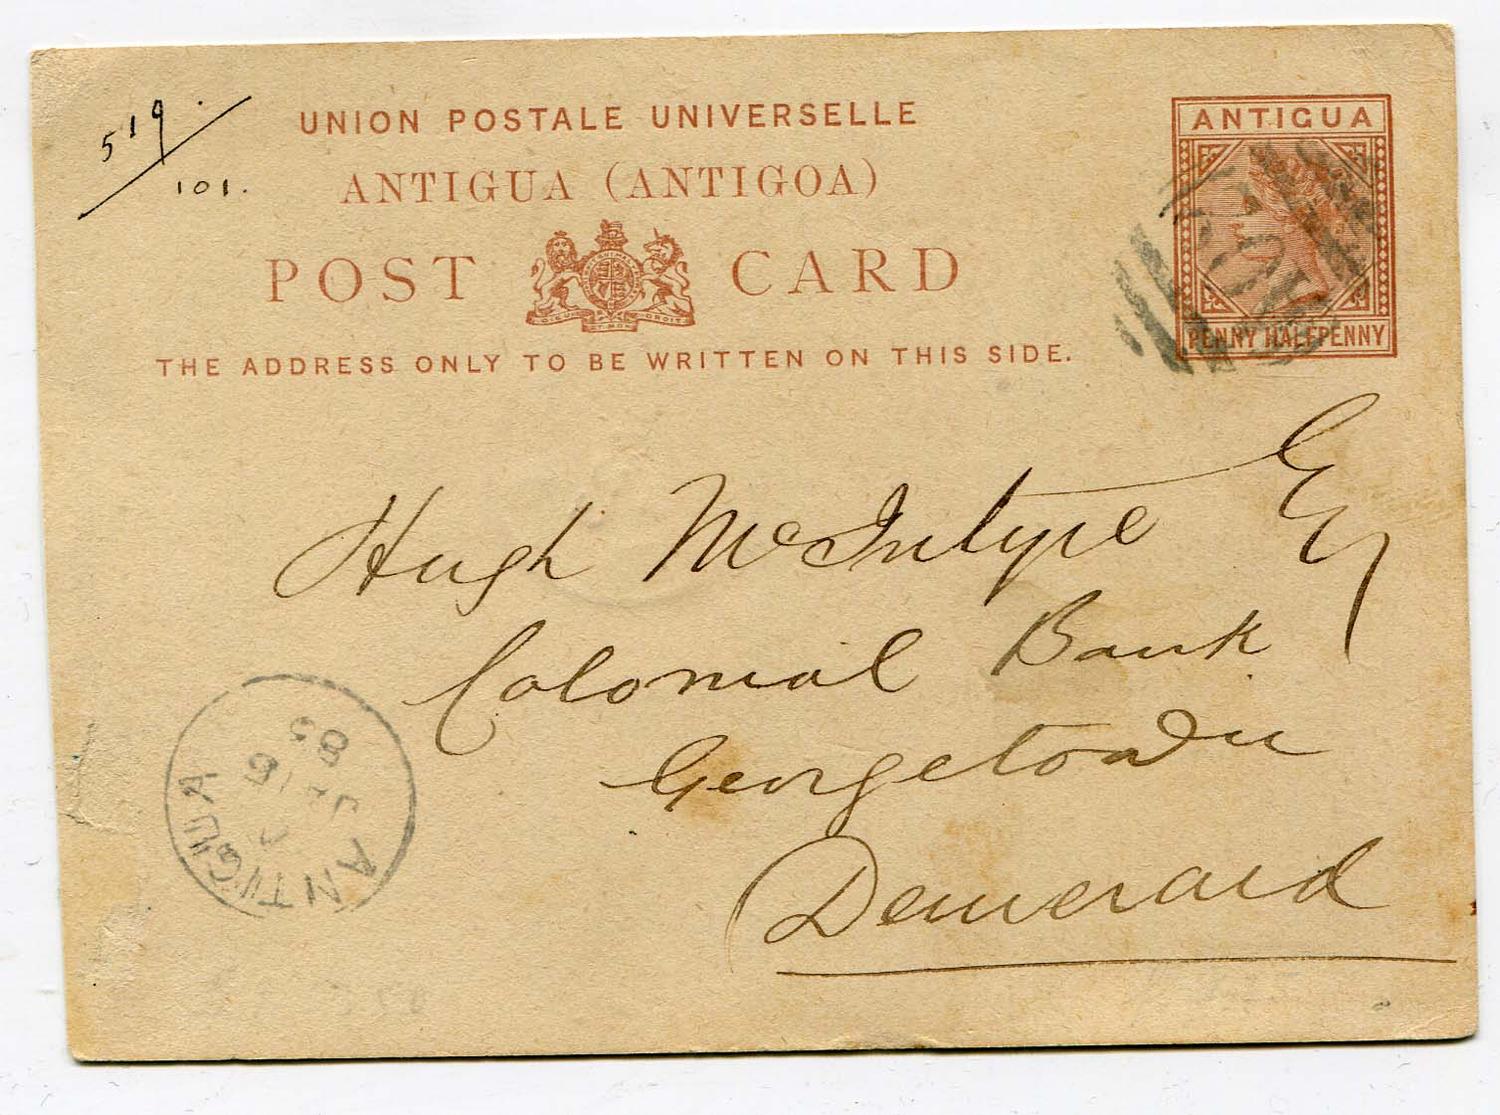 519
101.
UNION POSTALE UNIVERSELLE
ANTIGUA (ANTIGOA)
POST CARD
THE ADDRESS ONLY TO BE WRITTEN ON THIS SIDE.
ANTIGUA
PENNY HALFPENNY
Hugh McIntyre Esq
Colonial Bank
Georgetown
Demerara
ANTIGUA
85